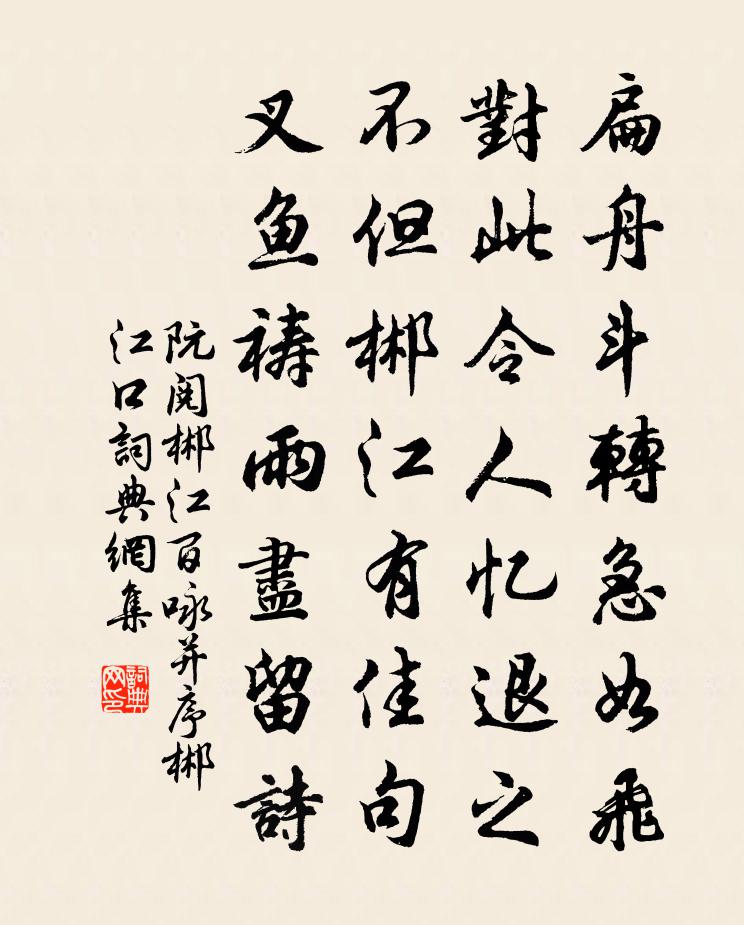 扁舟斗轉急如飛
對此令人忆退之
不但郴江有佳句
叉鱼禱雨盡留詩
阮閱郴江百咏并序郴
江口詞典網集
詞典网印